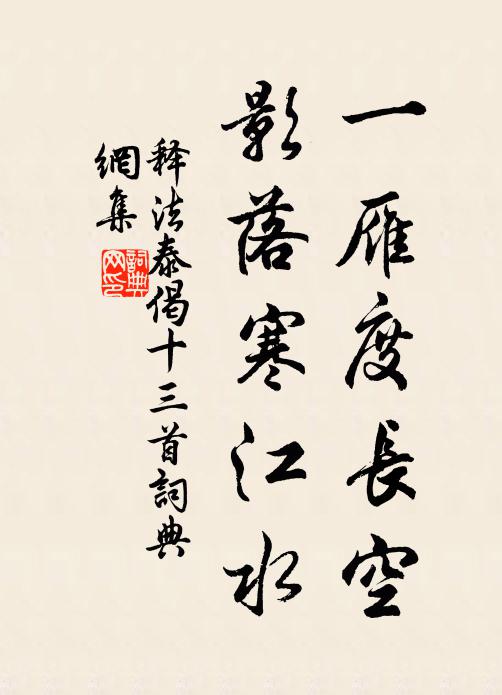 一雁度長空
影落寒江水
释法泰偈十三首詞典
網集
詞典
网印